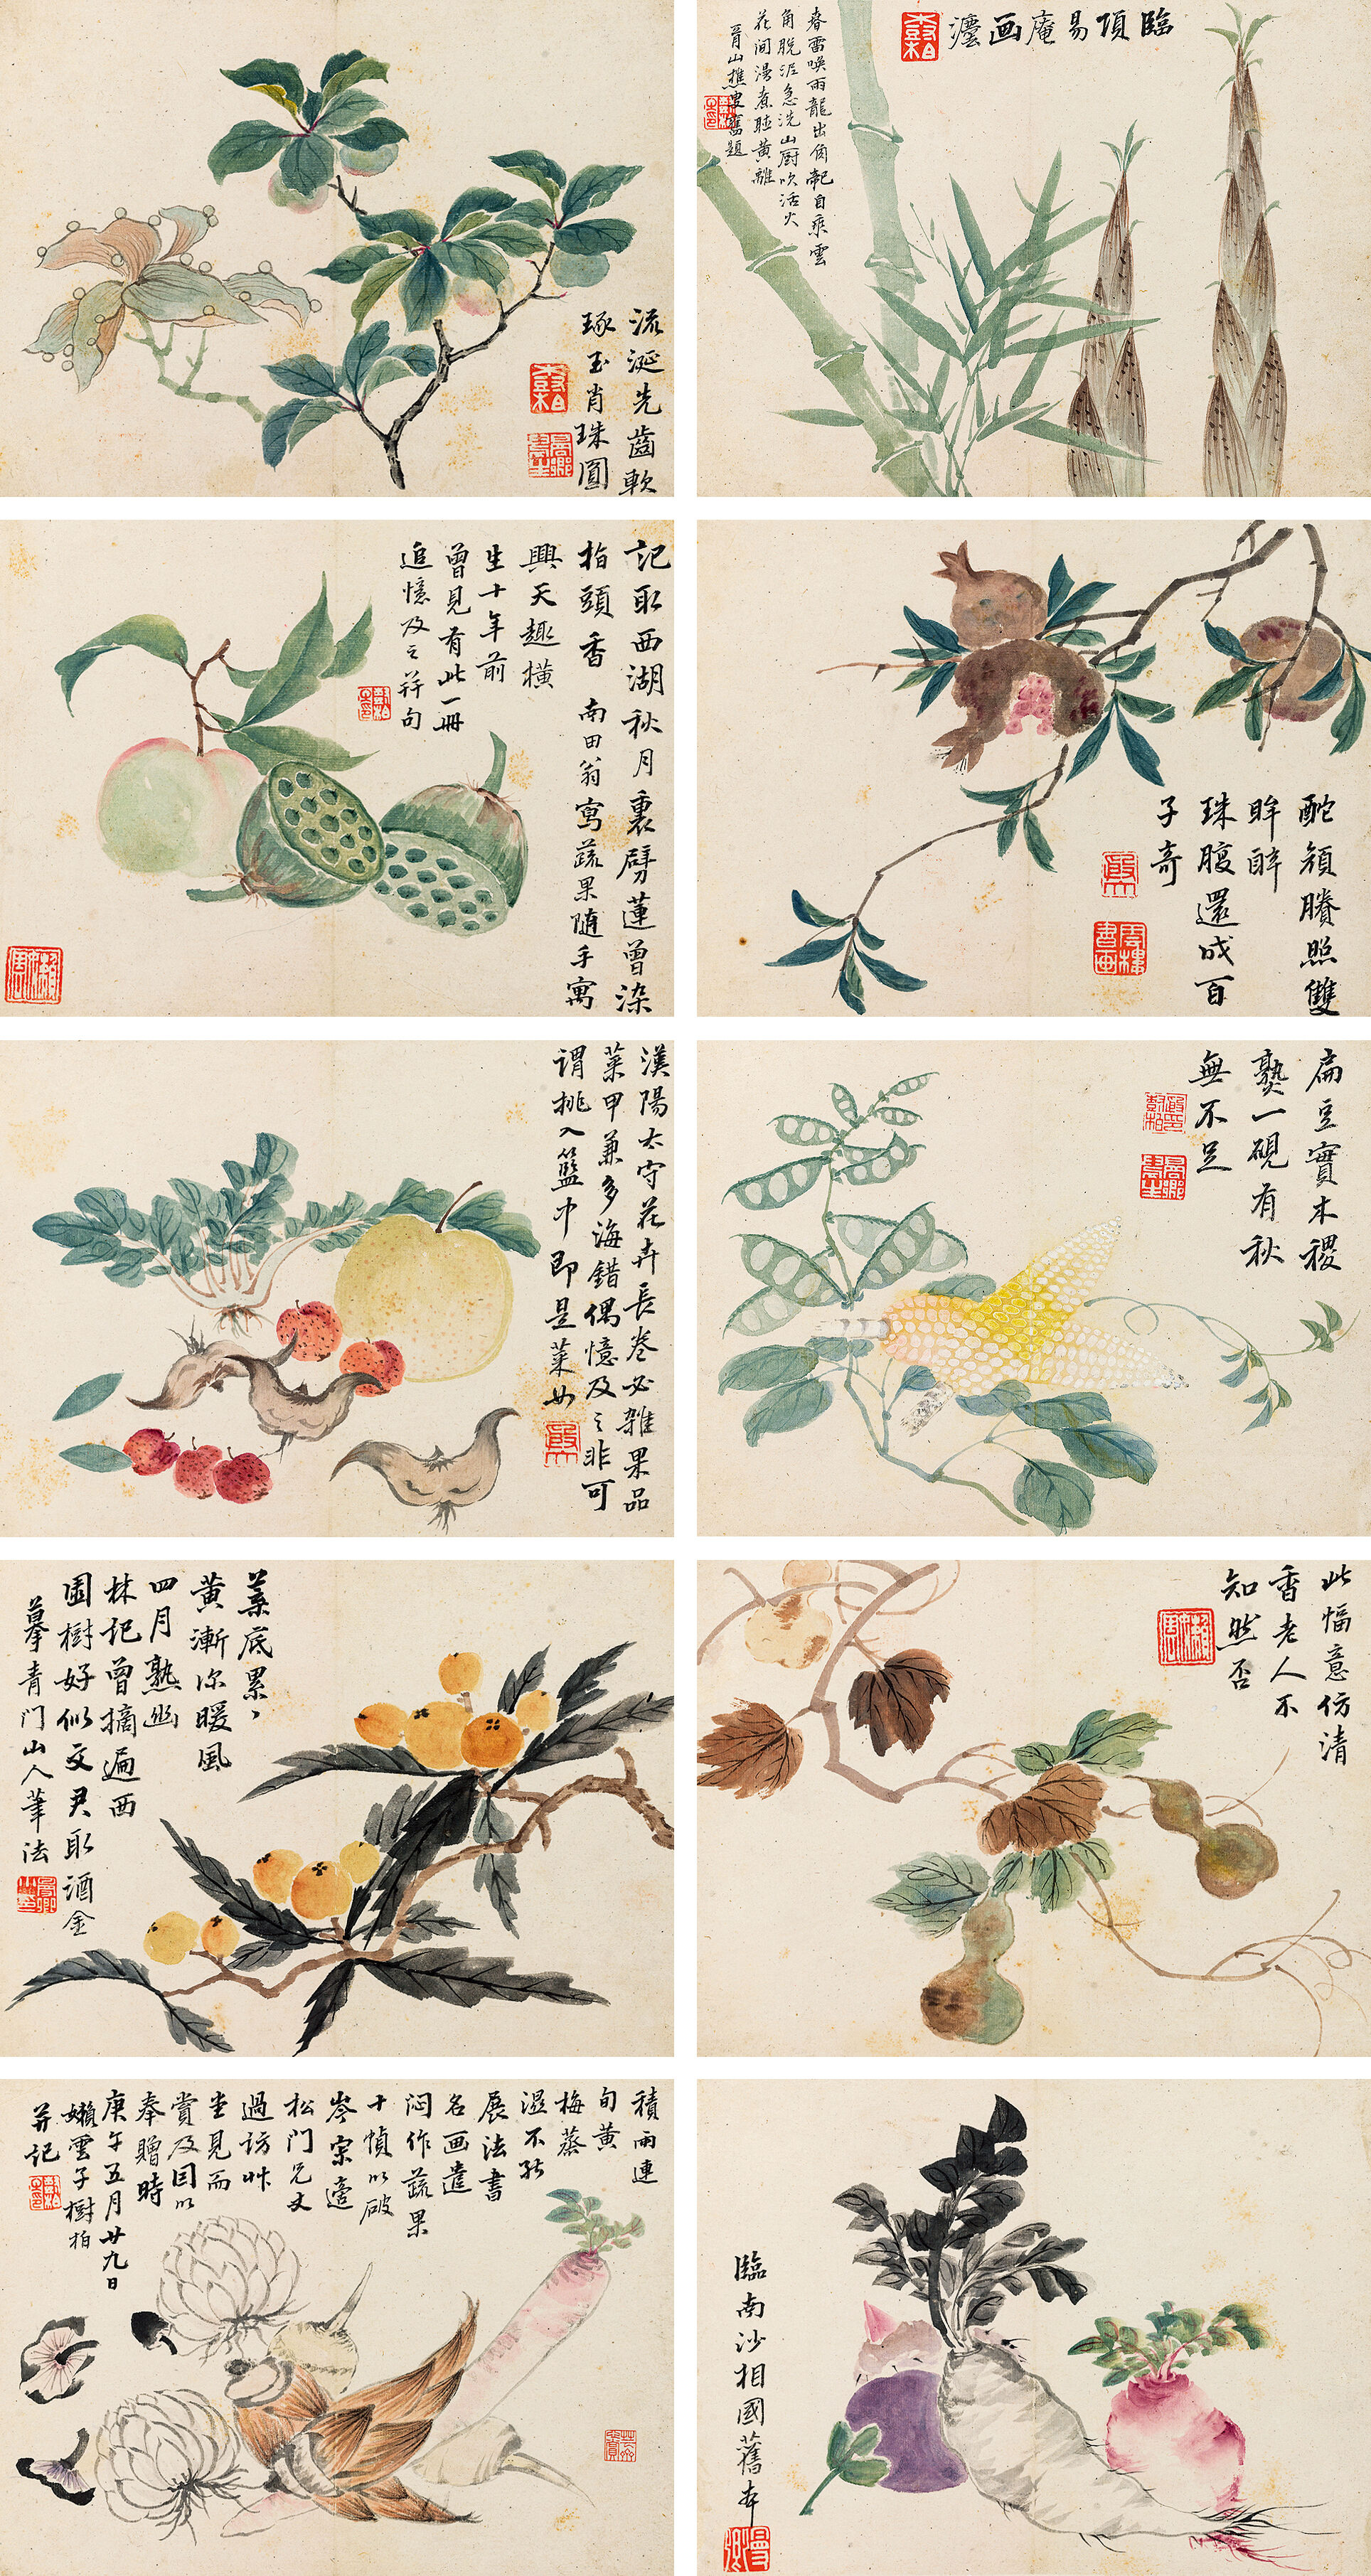 臨項易庵画灋
春雷喚雨龍出自乘雲
角脫泥急洗山厨吹活火
花间漫煮聽黃離
胥山樵叟舊題
流涎先齒軟
琢玉肖珠圓
酡顏賸照雙
眸醉
珠腹還成百
子奇
記取西湖秋月裏劈蓮曾染
指頭香 南田翁寫蔬果隨手寓
興天趣橫
生十年前
曾見有此一冊
追憶及之并句
扁豆實木稷
熟一硯有秋
無不足
漢陽太守花卉長卷必雜果品
菜甲兼多海錯偶憶及之非可
謂挑入籃中即是菜也
此幅意仿清
香老人不
知然否
葉底累〻
黃漸深暖風
四月熟幽
林記曾摘遍西
園樹好似文君取酒金
摹青門山人筆法
臨南沙相國舊本
積雨連
旬黃
梅蒸
濕不能
展法書
名画遣
闷作蔬果
十幀以破
岑寂適
松門兄丈
過訪艸
堂見而
賞及因以
奉贈時
庚午五月廿九日
嬾雲子樹柏
并記